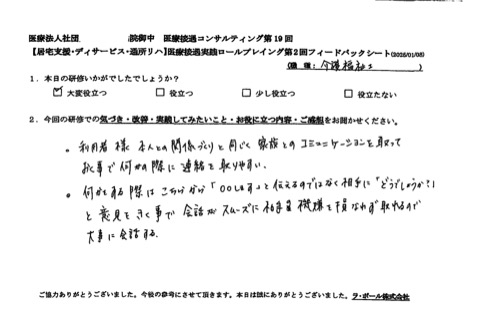 医療法人社団　　　院御中　医療接遇コンサルティング第19回
【居宅支援・デイサービス・通所リハ】医療接遇実践ロールプレイング第2回フィードバックシート(2025/01/08)
(職 種： 介護福祉士
1．本日の研修いかがでしたでしょうか？
☑ 大変役立つ　□ 役立つ　□ 少し役立つ　□ 役立たない
2．今回の研修での気づき・改善・実践してみたいこと・お役に立つ内容・ご感想をお聞かせください。
。利用者様 本人との関係づくりと同じく 家族とのコミュニケーションを取って
おく事で何かの際に連絡を取りやすい。
。何かをする際は こちらから「○○します」と伝えるのではなく相手に「どうでしょうか？」
と意見をきく事で 会話がスムーズに 相手も機嫌を損なわず取れるので
大事に会話する。
ご協力ありがとうございました。今後の参考にさせて頂きます。本日は誠にありがとうございました。ラ・ポール株式会社